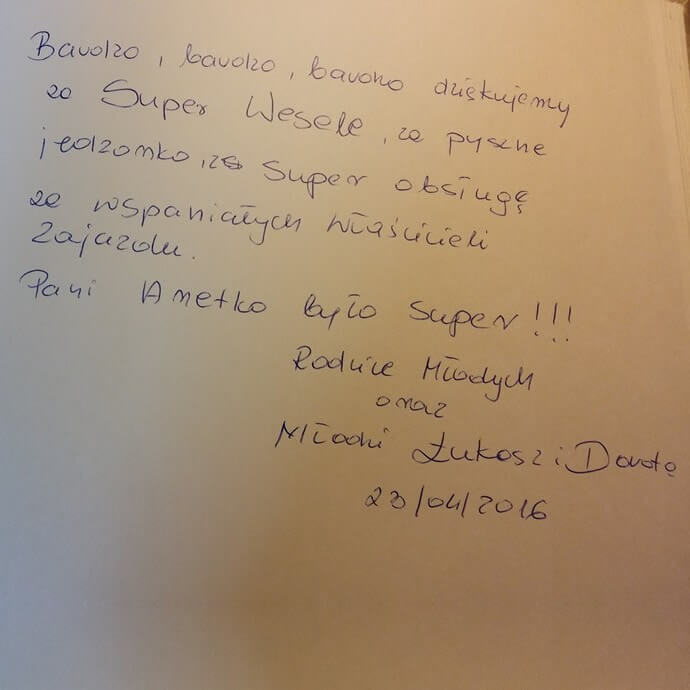 Bardzo, bardzo, bardzo dziękujemy
za Super Wesele, za pyszne
jedzonko, za super obsługę
za wspaniałych właścicieli
zajazdu.
Pani Anetko było super!!!
Rodzice Młodych
oraz
Młodzi Łukasz i Dorota
23/04/2016